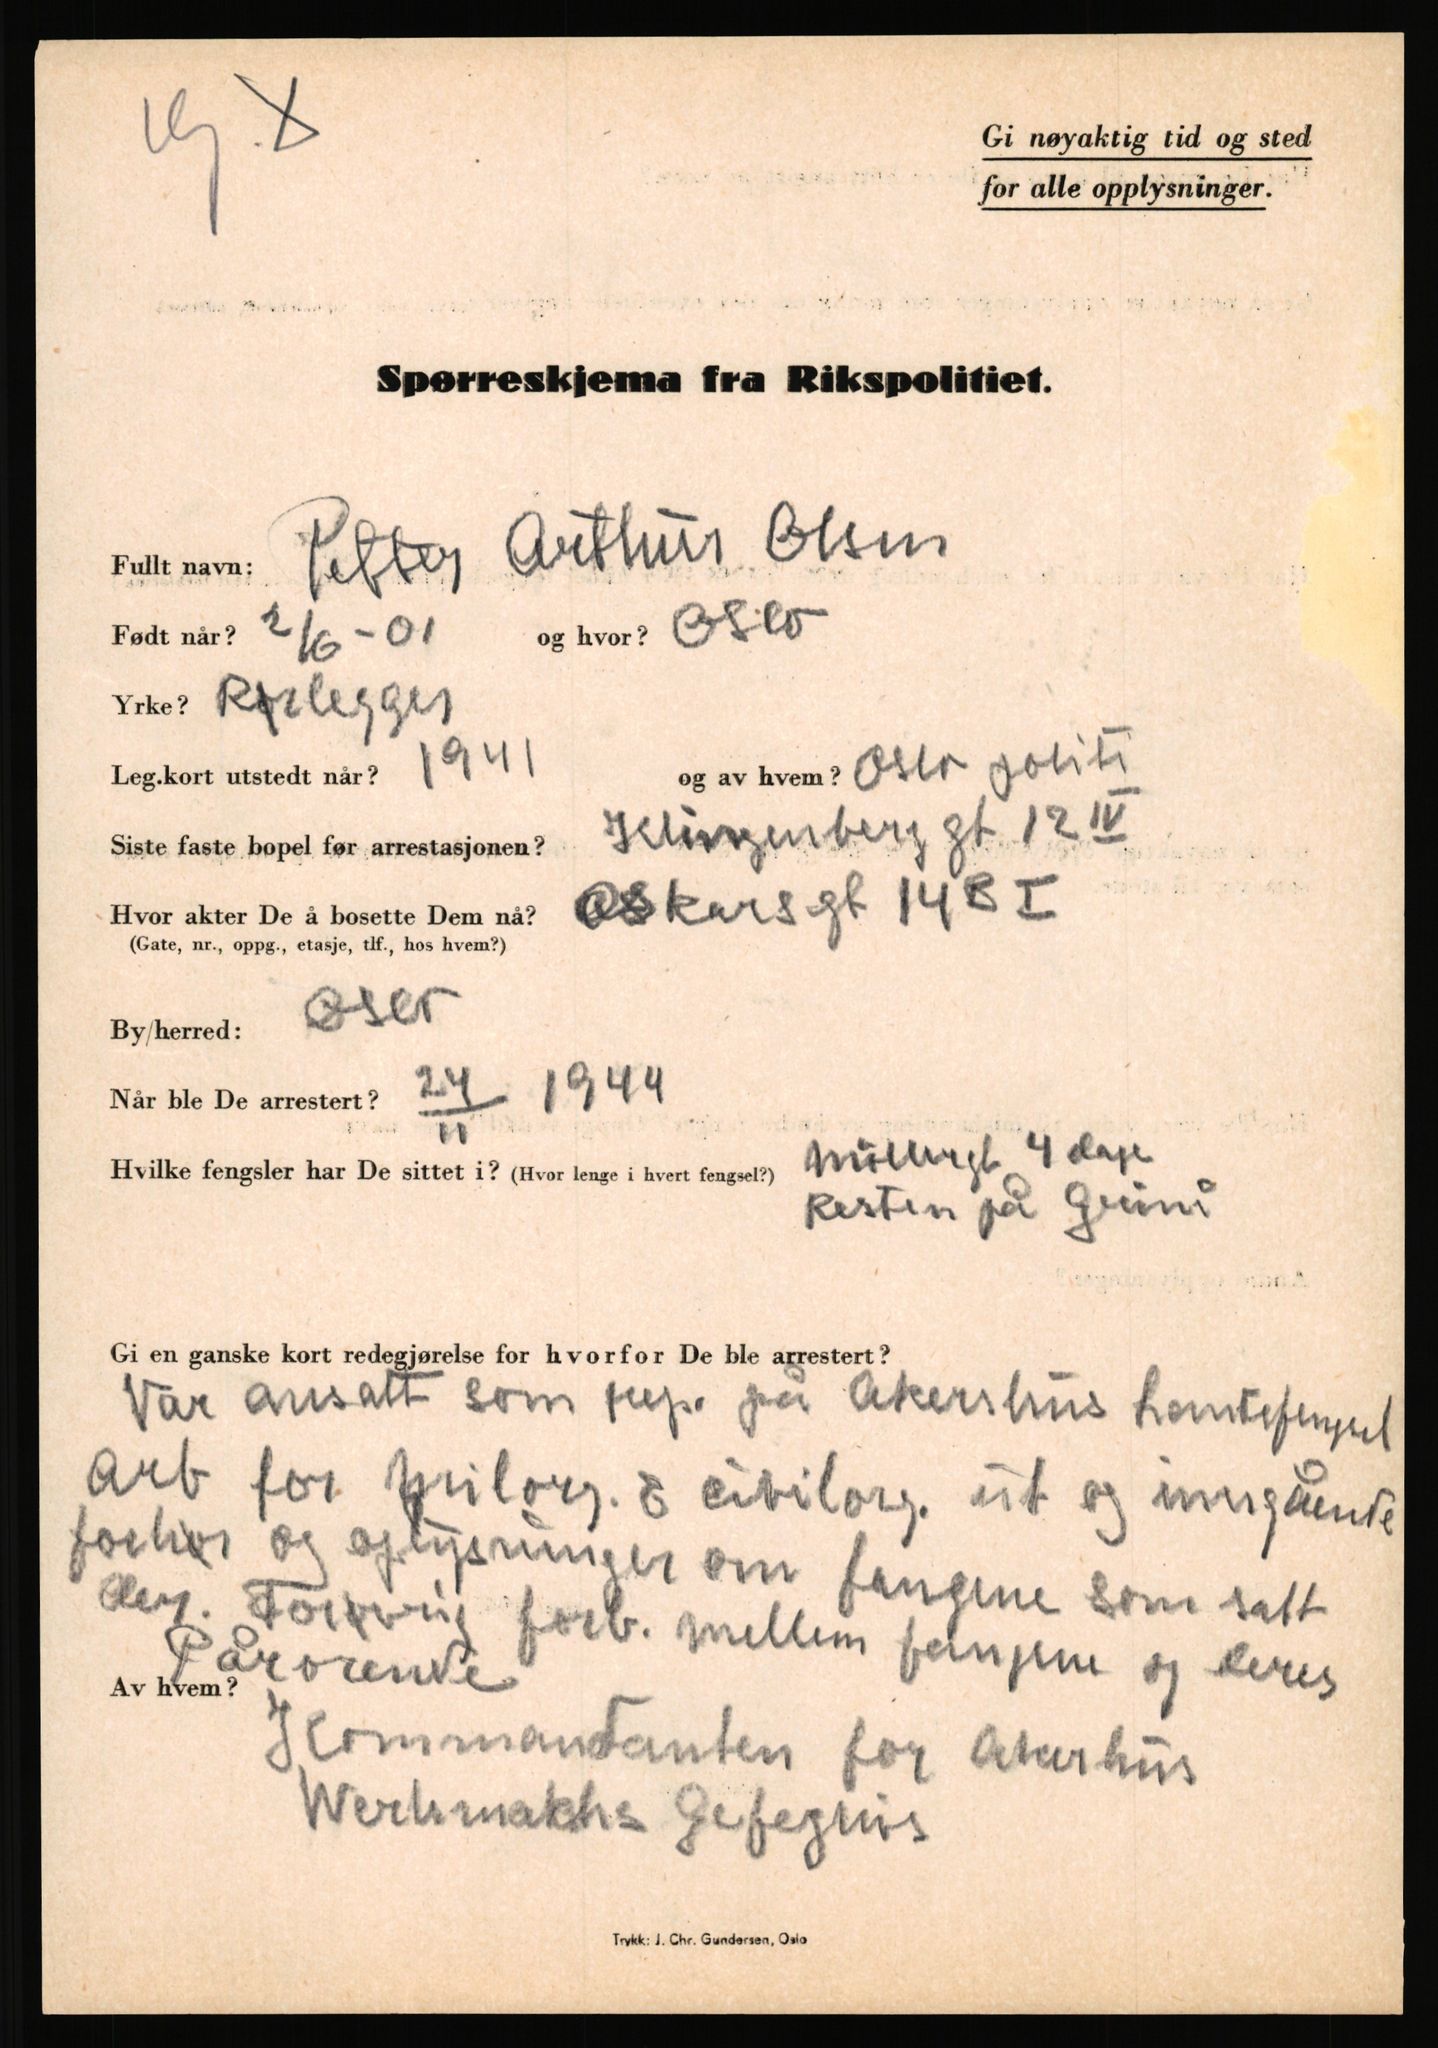 Gi nøyaktig tid og sted
for alle opplysninger.
Spørreskjema fra Rikspolitiet.
Fullt navn: Petter Arthur Olsen
Født når? 2/6-01 og hvor? Oslo
Yrke? Rørlegger
Leg.kort utstedt når? 1941 og av hvem? Oslo politi
Siste faste bopel før arrestasjonen? Klingenberg gt 12 IV
Hvor akter De å bosette Dem nå? Oskarsgt 14 B I
(Gate, nr., oppg., etasje, tlf., hos hvem?)
By/herred: Oslo
Når ble De arrestert? 24/11 1944
Hvilke fengsler har De sittet i? (Hvor lenge i hvert fengsel?) Möllergt 4 dage
Resten på Grini
Gi en ganske kort redegjørelse for hvorfor De ble arrestert?
Var ansatt som rep. på Akershus
Arb for Milorg. & civilorg. ut og inngående
forhør og oplysninger om fangene som satt
der. forb. mellem fangene og deres
Pårørende
Av hvem?
Kommandanten for Akerhus
Werhmakhs Gefegnis
Trykk: J. Chr. Gundersen, Oslo